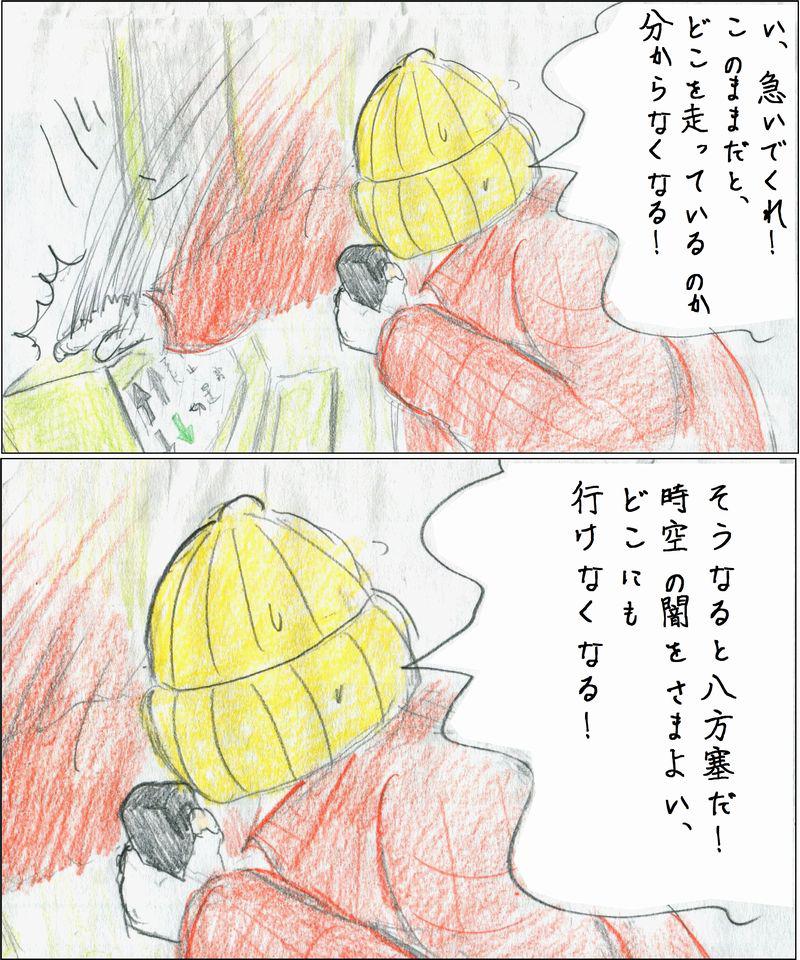 い、急いでくれ！
このままだと、
どこを走っているのか
分からなくなる！
そうなると八方塞だ！
時空の闇をさまよい、
どこにも
行けなくなる！